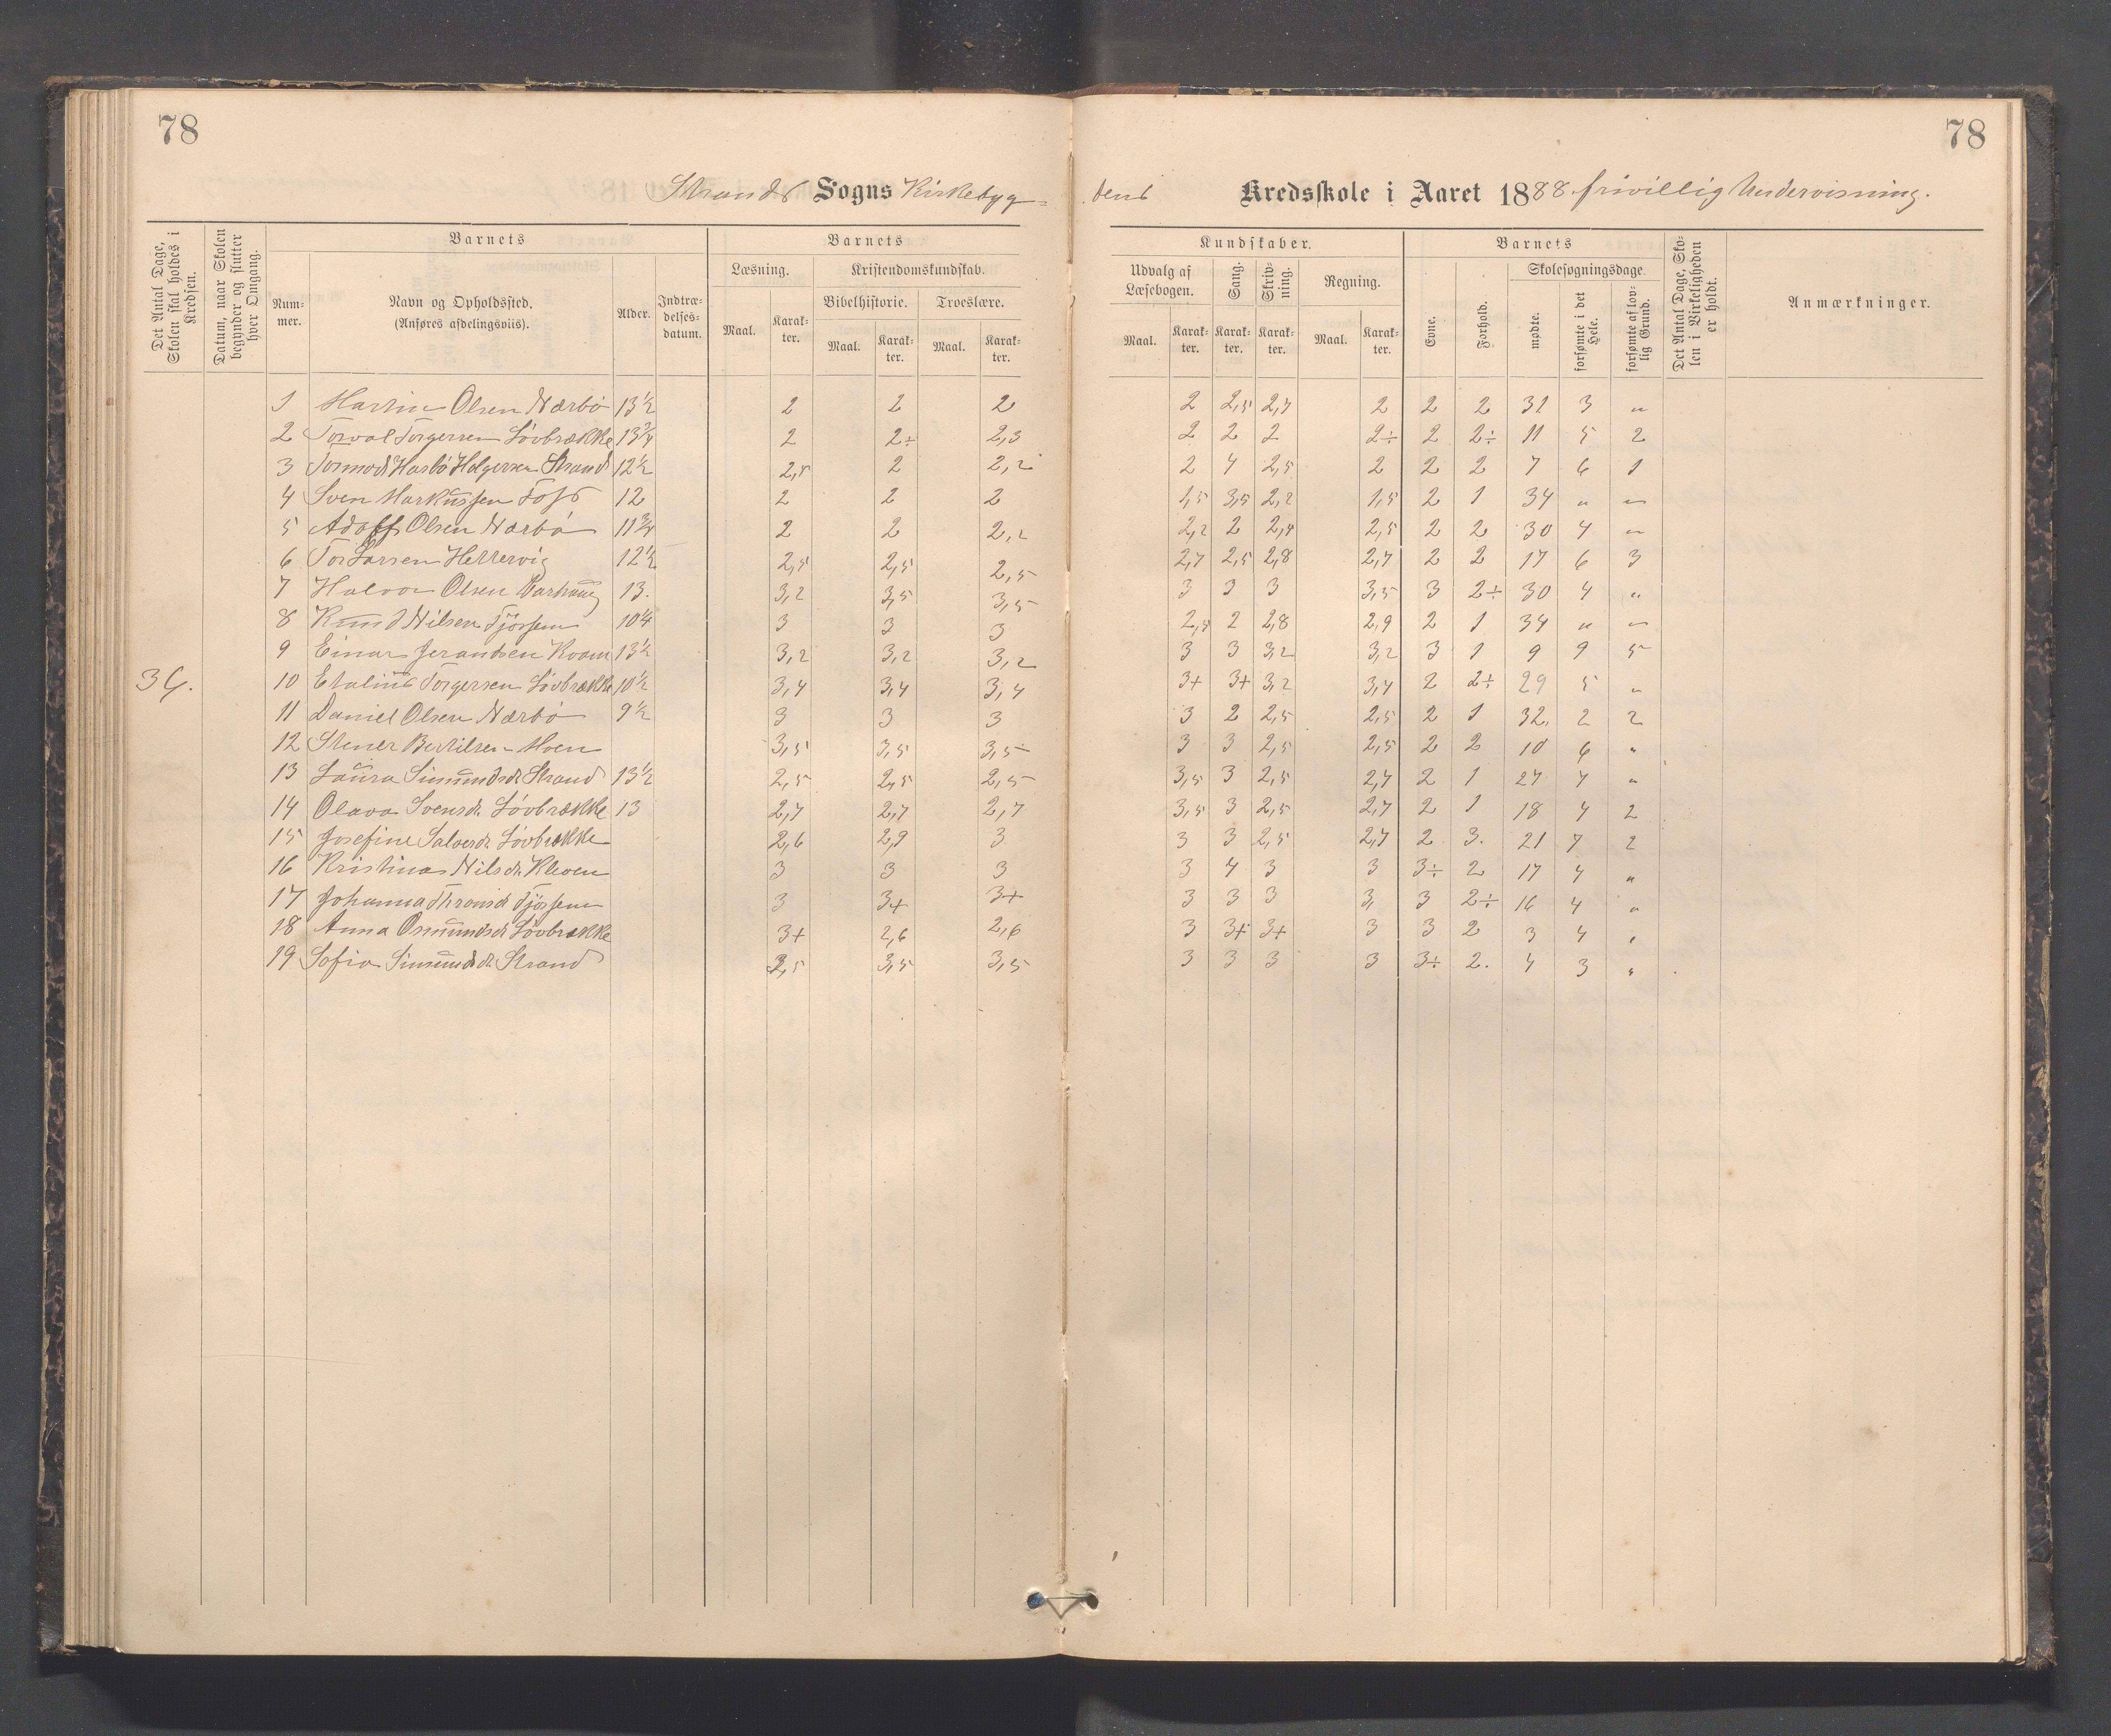 78 78
Strands Sogns Kirkebyg= dens Kredsskole i Aaret 1888 frivillig Undervisning.
Det Antal Dage, Skolen skal holdes i Kredsen.
Datum, naar Skolen begynder og slutter hver Omgang.
Barnets
Nummer.
Navn og Opholdssted. (Anføres afdelingsviis).
Alder.
Indtrædelses-datum.
Barnets
Læsning. Kristendomskundskab.
Bibelhistorie. Troeslære.
Maal. Karakter. Maal. Karakter. Maal. Karakter.
Kundskaber.
Udvalg af Læsebogen. Sang. Skrivning. Regning.
Maal. Karakter. Karakter. Karakter. Maal. Karakter.
Barnets
Evne. Forhold. Skolesøgningsdage.
mødte. forsømte i det Hele. forsømte af lovlig Grund.
Det Antal Dage, Skolen i Virkeligheden er holdt.
Anmærkninger.
1 Martin Olsen Nærbø 13½ 2 2 2 2 2,5 2,7 2 2 2 31 3 "
2 Torval Torgersen Løvbrække 13¾ 2 2÷ 2,3 2 2 2 2÷ 2 2÷ 11 5 2
3 Tormod Holgersen Strand 12½ 2,5 2 2,2 2 4 2,5 2 2 2 7 6 1
4 Sven Markussen Foss 12 2 2 2 1,5 3,5 2,2 1,5 2 1 34 " "
5 Adolf Olsen Nærbø 11¾ 2 2 2,2 2,2 2 2,4 2,5 2 2 30 4 "
6 Tor Larsen Hettervig 12½ 2,5 2,5 2,5 2,7 2,5 2,8 2,7 2 2 17 6 3
7 Halvor Olsen Barhaug 13. 3,2 3,5 3,5 3 3 3 3,5 3 2÷ 30 4 "
8 Knud Nilsen Tjøssem 10¼ 3 3 3 2,5 2 2,8 2,9 2 1 34 " "
9 Einar Jerandsen Kvam 13½ 3,2 3,2 3,2 3 3 3,2 3,2 3 1 9 9 5
34. 10 Torgersen Løvbrække 10½ 3,4 3,4 3,4 3+ 3+ 3,2 3,4 2 2÷ 29 5 "
11 Daniel Olsen Nærbø 9½ 3 3 3 3 2 2,5 2,5 2 1 32. 2 2
12 Stener Bertilsen Moen 3,5 3,5 3,5 3 3 2,5 2,5 2 2 10 6 "
13 Laura Simundsdt Strand 13½ 2,5 2,5 2,5 3,5 3 2,5 2,7 2 1 27 7 "
14 Olava Svensdt. Løvbrække 13 2,7 2,7 2,7 3,5 3 2,5 2,7 2 1 18 4 2
15 Josefine Salvesdt Løvbrække 2,6 2,9 3 3 3 2,5 2,7 2 3. 21 7 2
16 Kristina Nilsdt. Kleven 3 3 3 3 4 3 3 3÷ 2 17 4 "
17 Johanna Tronsdt Tjøssem 3 3+ 3+ 3 3 3 3, 3 2÷ 16 4 "
18 Anna Osmundsdt Løvbrække 3+ 2,6 2,6 3 3+ 3+ 3 3 2 3 4 "
19 Sofia Simundsdt. Strand 3,5 3,5 3,5 3 3 3 3 3÷ 2. 4 3 "